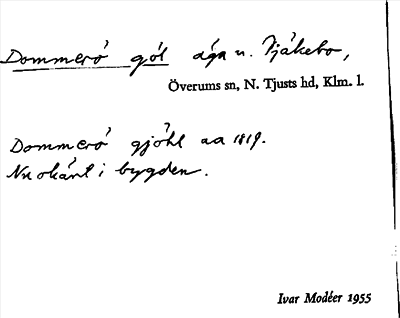 Dommerö göl äga u. Tjäkebo,
Överums sn, N. Tjusts hd, Klm. l.
Dommerö gjöhl aa 1819.
Nu okänt i bygden.
Ivar Modéer 1955